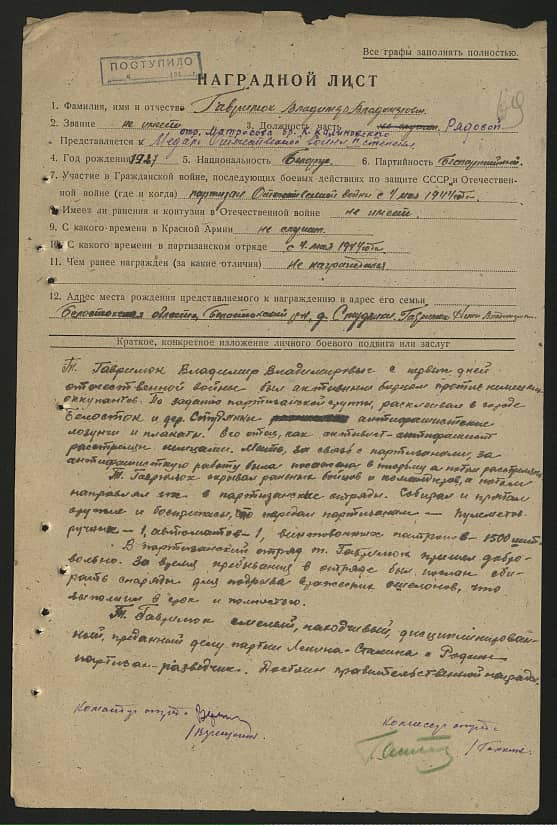 Все графы заполнять полностью.
ПОСТУПИЛО
НАГРАДНОЙ ЛИСТ
1. Фамилия, имя и отчество Гаврилюк Владимир Владимирович
2. Звание не имеет 3. Должность часть Рядовой
отр. Матросова бр. К. Калиновского
Представляется к Медали Отечественной войны II степени
4. Год рождения 1927 5. Национальность Белорус 6. Партийность Беспартийный
7. Участие в Гражданской войне, последующих боевых действиях по защите СССР и Отечествен-
ной войне (где и когда) партизан Отечественной войны с 4 мая 1944 г.
8. Имеет ли ранения и контузии в Отечественной войне не имеет.
9. С какого времени в Красной Армии не служит.
10. С какого времени в партизанском отряде с 4. мая 1944 г.
11. Чем ранее награжден (за какие отличия) не награждался
12. Адрес места рождения представляемого к награждению и адрес его семьи
Белостокская область, Белостокский р-н, д. Гаврилюк
Краткое, конкретное изложение личного боевого подвига или заслуг
Т. Гаврилюк Владимир Владимирович с первых дней
отечественной войны был активным борцом против немецких
оккупантов. По заданию партизанской группы, расклеивал в городе
Белосток и дер. антифашистские
лозунги и плакаты. Его отец, как активист-антифашист
расстрелян немцами. Мать, за связь с партизанами, за
антифашистскую работу была посажена в тюрьму, а потом расстреляна.
Т. Гаврилюк скрывал раненых бойцов и командиров, а потом
направлял их в партизанские отряды. Собирал и прятал
оружие и боеприпасы, передал партизанам — пулеметов
ручных – 1, автоматов – 1, винтовочных патронов 1500 шт.
В партизанский отряд т. Гаврилюк пришел добро-
вольно. За время пребывания в отряде был послан соби-
рать снаряды для подрыва вражеских эшелонов, что
выполнил в срок и полностью.
Т. Гаврилюк смелый, находчивый, дисциплинирован-
ный, преданный делу партии Ленина-Сталина и Родине
партизан-разведчик. Достоин правительственной награды.
Командир отр.
Комиссар отр.